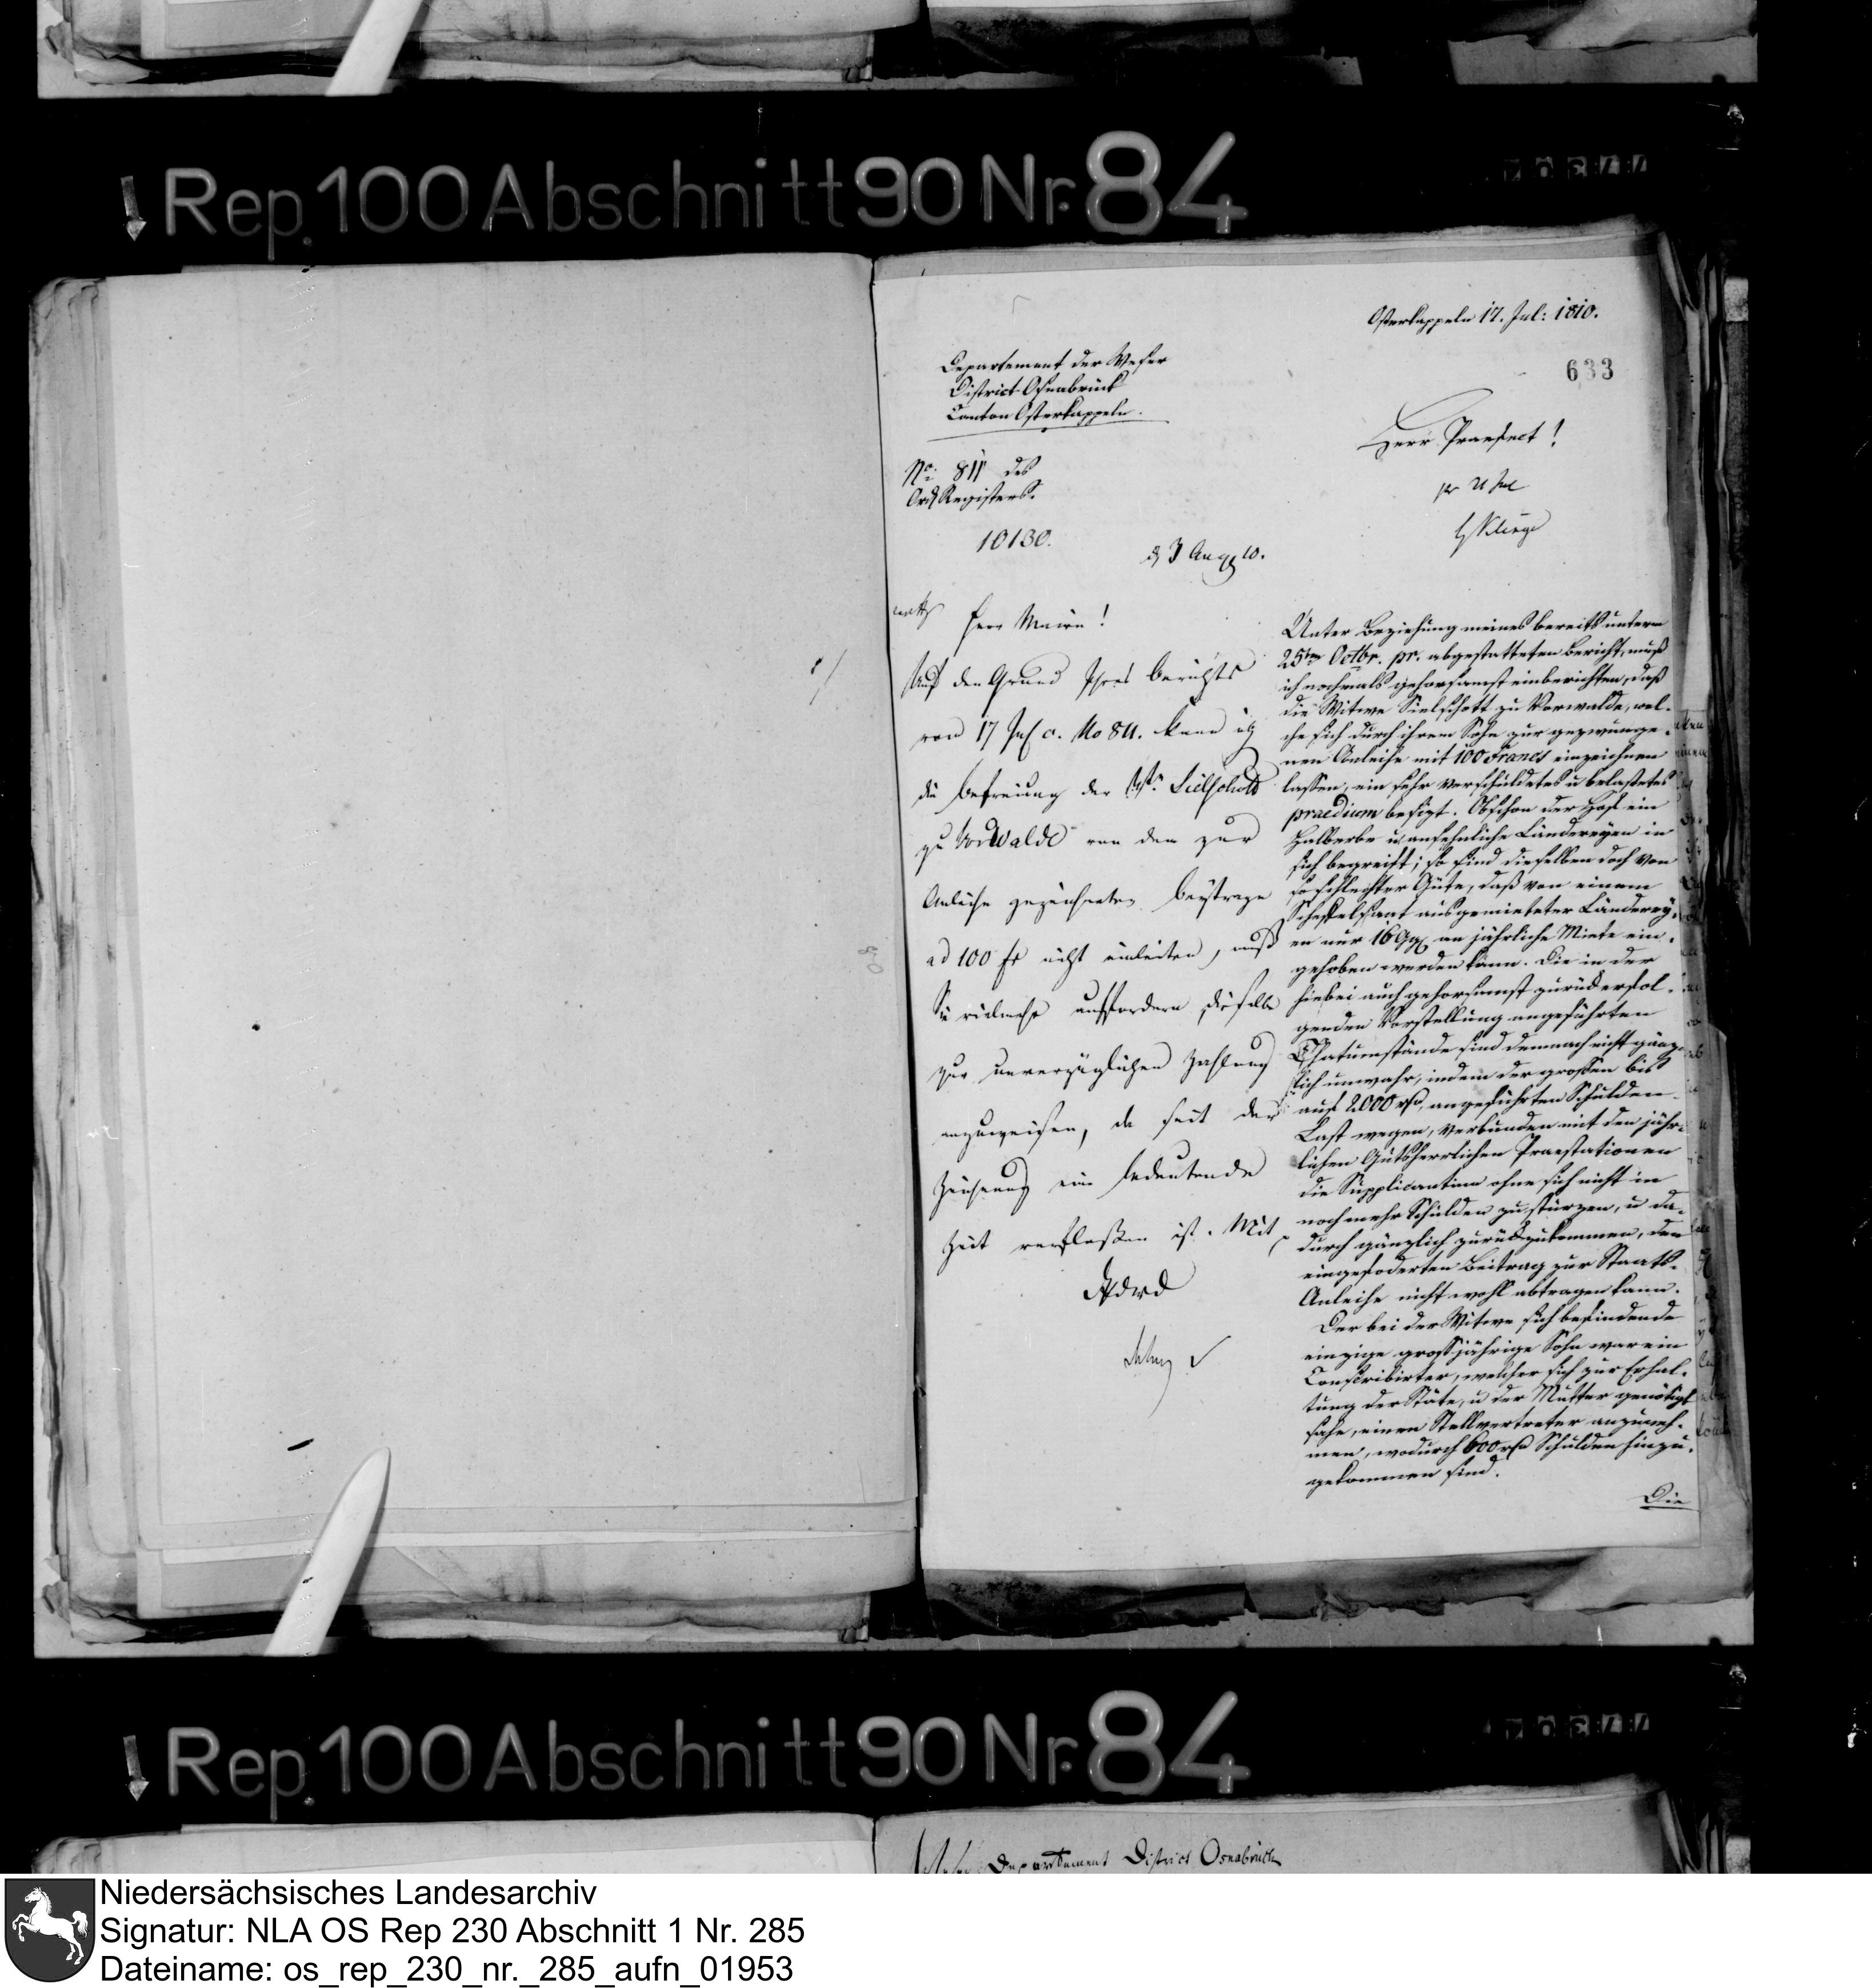 Rep. 100 Abschnitt 90 Nr. 84
Osterkappeln 17. Jul: 1810.
633
Departement der Weser
District Osnabrück
Canton Osterkappeln.
Herr Praefect!
No: 811 des
Registers.
10130.
3 Aug 10.
Herr Maire!
Auf den Grund Ihres Berichts
vom 17 Jul c. No 811. kann ich
die Befreiung der Sielschott
zu Vorwalde von dem zur
Anleihe gezeichneten Beytrage
ad 100 fr nicht einleiten, muß
Sie vielmehr auffordern dieselbe
zur unverzüglichen Zahlung
anzuweisen, da seit der
Zeichnung eine bedeutende
Zeit verfloßen ist. Mit
Unter Beziehung meines bereits unterm
25ten Octbr. pr. abgestatteten Bericht, muß
ich nochmals gehorsamst einberichten, daß
die Witwe Sielschott zu Vorwalde, wel-
che sich durch ihrem Sohn zur gezwunge-
nen Anleihe mit 100 Francs einzeichnen
lassen, ein sehr verschuldetes u belastetes
praedium besizt. Obschon der Hof ein
Halberbe u ansehnliche Ländereyen in
sich begreift; so sind dieselben doch von
so schlechter Güte, daß von einem
Scheffelsaat ausgemieteter Länderey-
en nur 16 Ggr an jährliche Miete ein-
gehoben werden kann. Die in der
hiebei auch gehorsamst zurückerfol-
genden Vorstellung angeführten
Thatumstände sind demnach nicht gänz-
lich unwahr, indem der großen bis
auf 2000 rth angeführten Schulden-
Last wegen, verbunden mit den jähr-
lichen Gutsherrlichen Praestationen
die Supplicantinn ohne sich nicht in
noch mehr Schulden zu stürzen, u da-
durch gänzlich zurückzukommen, den
eingefoderten Beitrag zur Staats-
Anleihe nicht wohl abtragen kann.
Der bei der Witwe sich befindende
einzige großjährige Sohn war ein
Conscribirter, welcher sich zur Erhal-
tung der Stäte, u der Mutter genötigt
sahe, einen Stellvertreter anzuneh-
men, wodurch 600 rth Schulden hinzu-
gekommen sind.
Die
Rep. 100 Abschnitt 90 Nr. 84
Departement District Osnabrück
Niedersächsisches Landesarchiv
Signatur: NLA OS Rep 230 Abschnitt 1 Nr. 285
Dateiname: os_rep_230_nr._285_aufn_01953